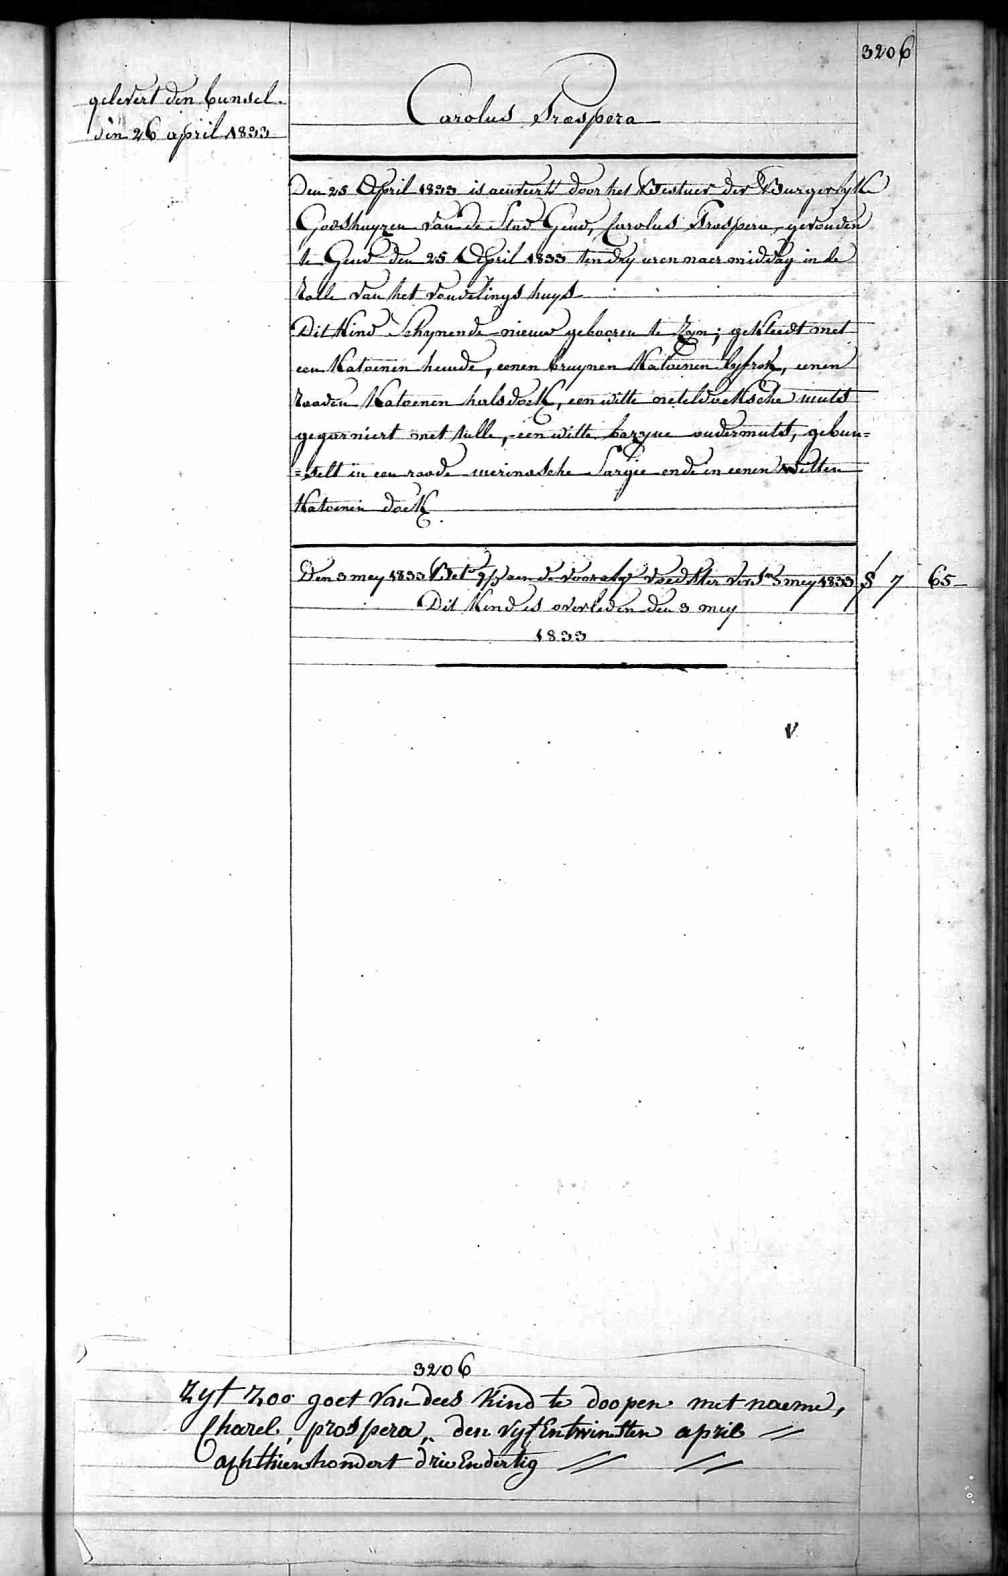 3206
gelevert den bunsel
den 26 april 1833
Carolus Prospera
Den 25 April 1833 is aenveirt door het Bestuer der Burgerlyke
Godshuyzen van de Stad Gend, Carolus Prospera, gevonden
te Gend den 25 April 1833 ten dry uren naer middag in de
rolle van het vondelings huys
Dit Kind schynende nieuw gebooren te zyn; gekleedt met
een Katoenen hemde, eenen bruynen Katoenen lyfrok, eenen
rooden Katoenen halsdoek, een witte neteldoeksche muts
gegarniert met tulle, een witte bazyne ondermuts, gebun=
=selt in een roode merinosche Sargie ende in eenen witten
Katoenen doek
Den 3 mey 1833 aen de voedster 3 mey 1833 § 7 65-
Dit Kind is overleden den 3 mey
1833
V
3206
Zyt zoo goet van dees Kind te doopen met naeme,
Charel, prospera, den vyfEntwinsten april
aghthienhondert drieEndertig